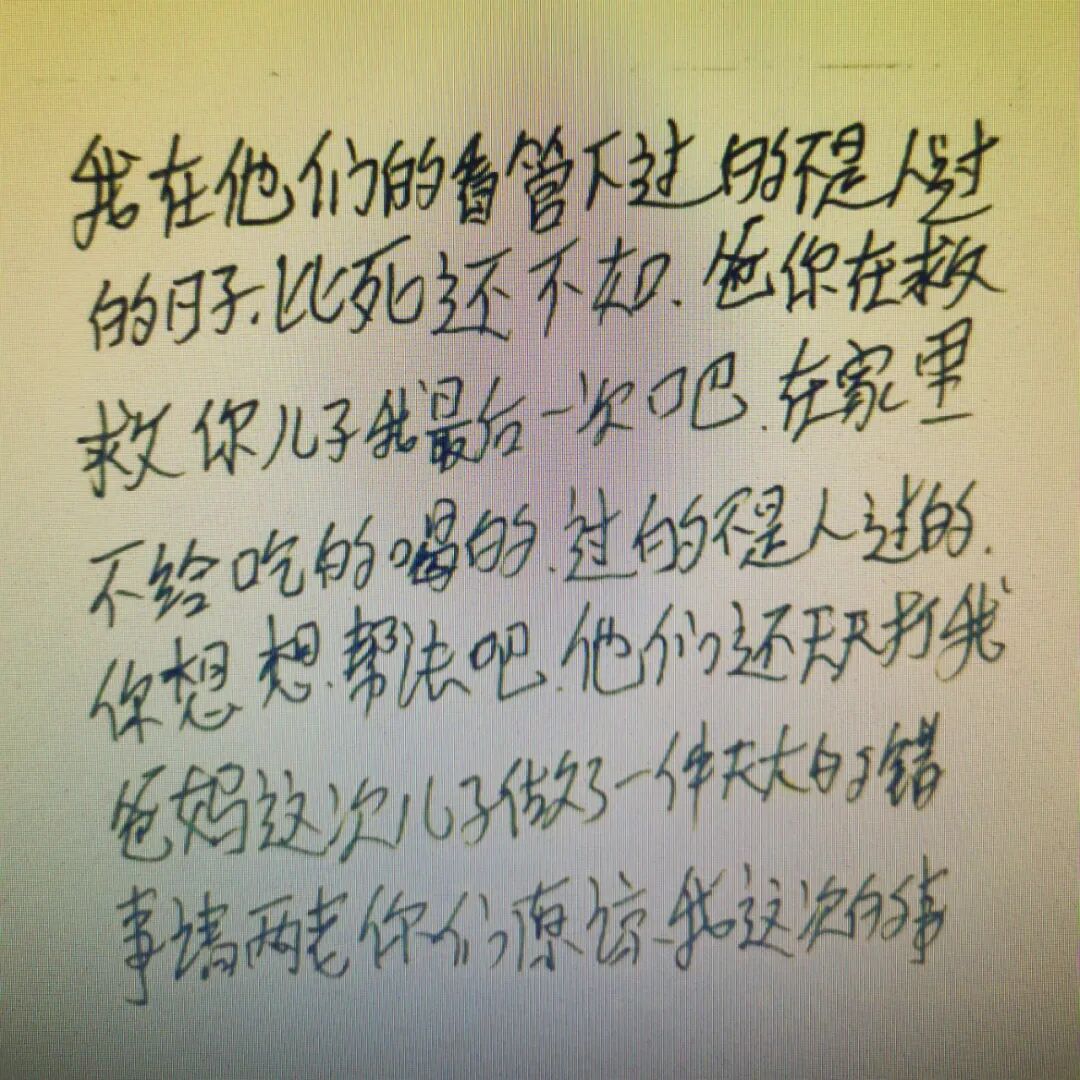 我在他们的看管下过的不是人过
的日子.比死还不如.爸你在救
救你儿子我最后一次吧.在家里
不给吃的喝的.过的不是人过的.
你想想.帮法吧.他们还天天打我
爸妈这次儿子做了一件天大的错
事请两老你们原谅.我这次的事